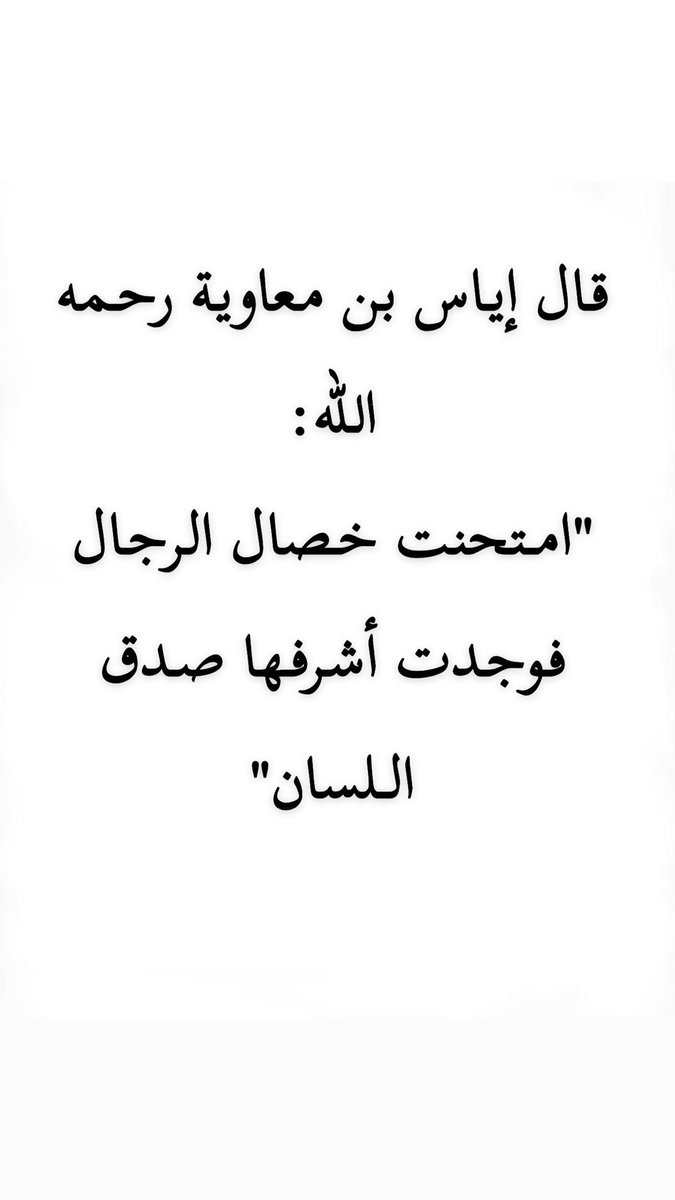 قال إياس بن معاوية رحمه
الله:
"امتحنت خصال الرجال
فوجدت أشرفها صدق
اللسان"